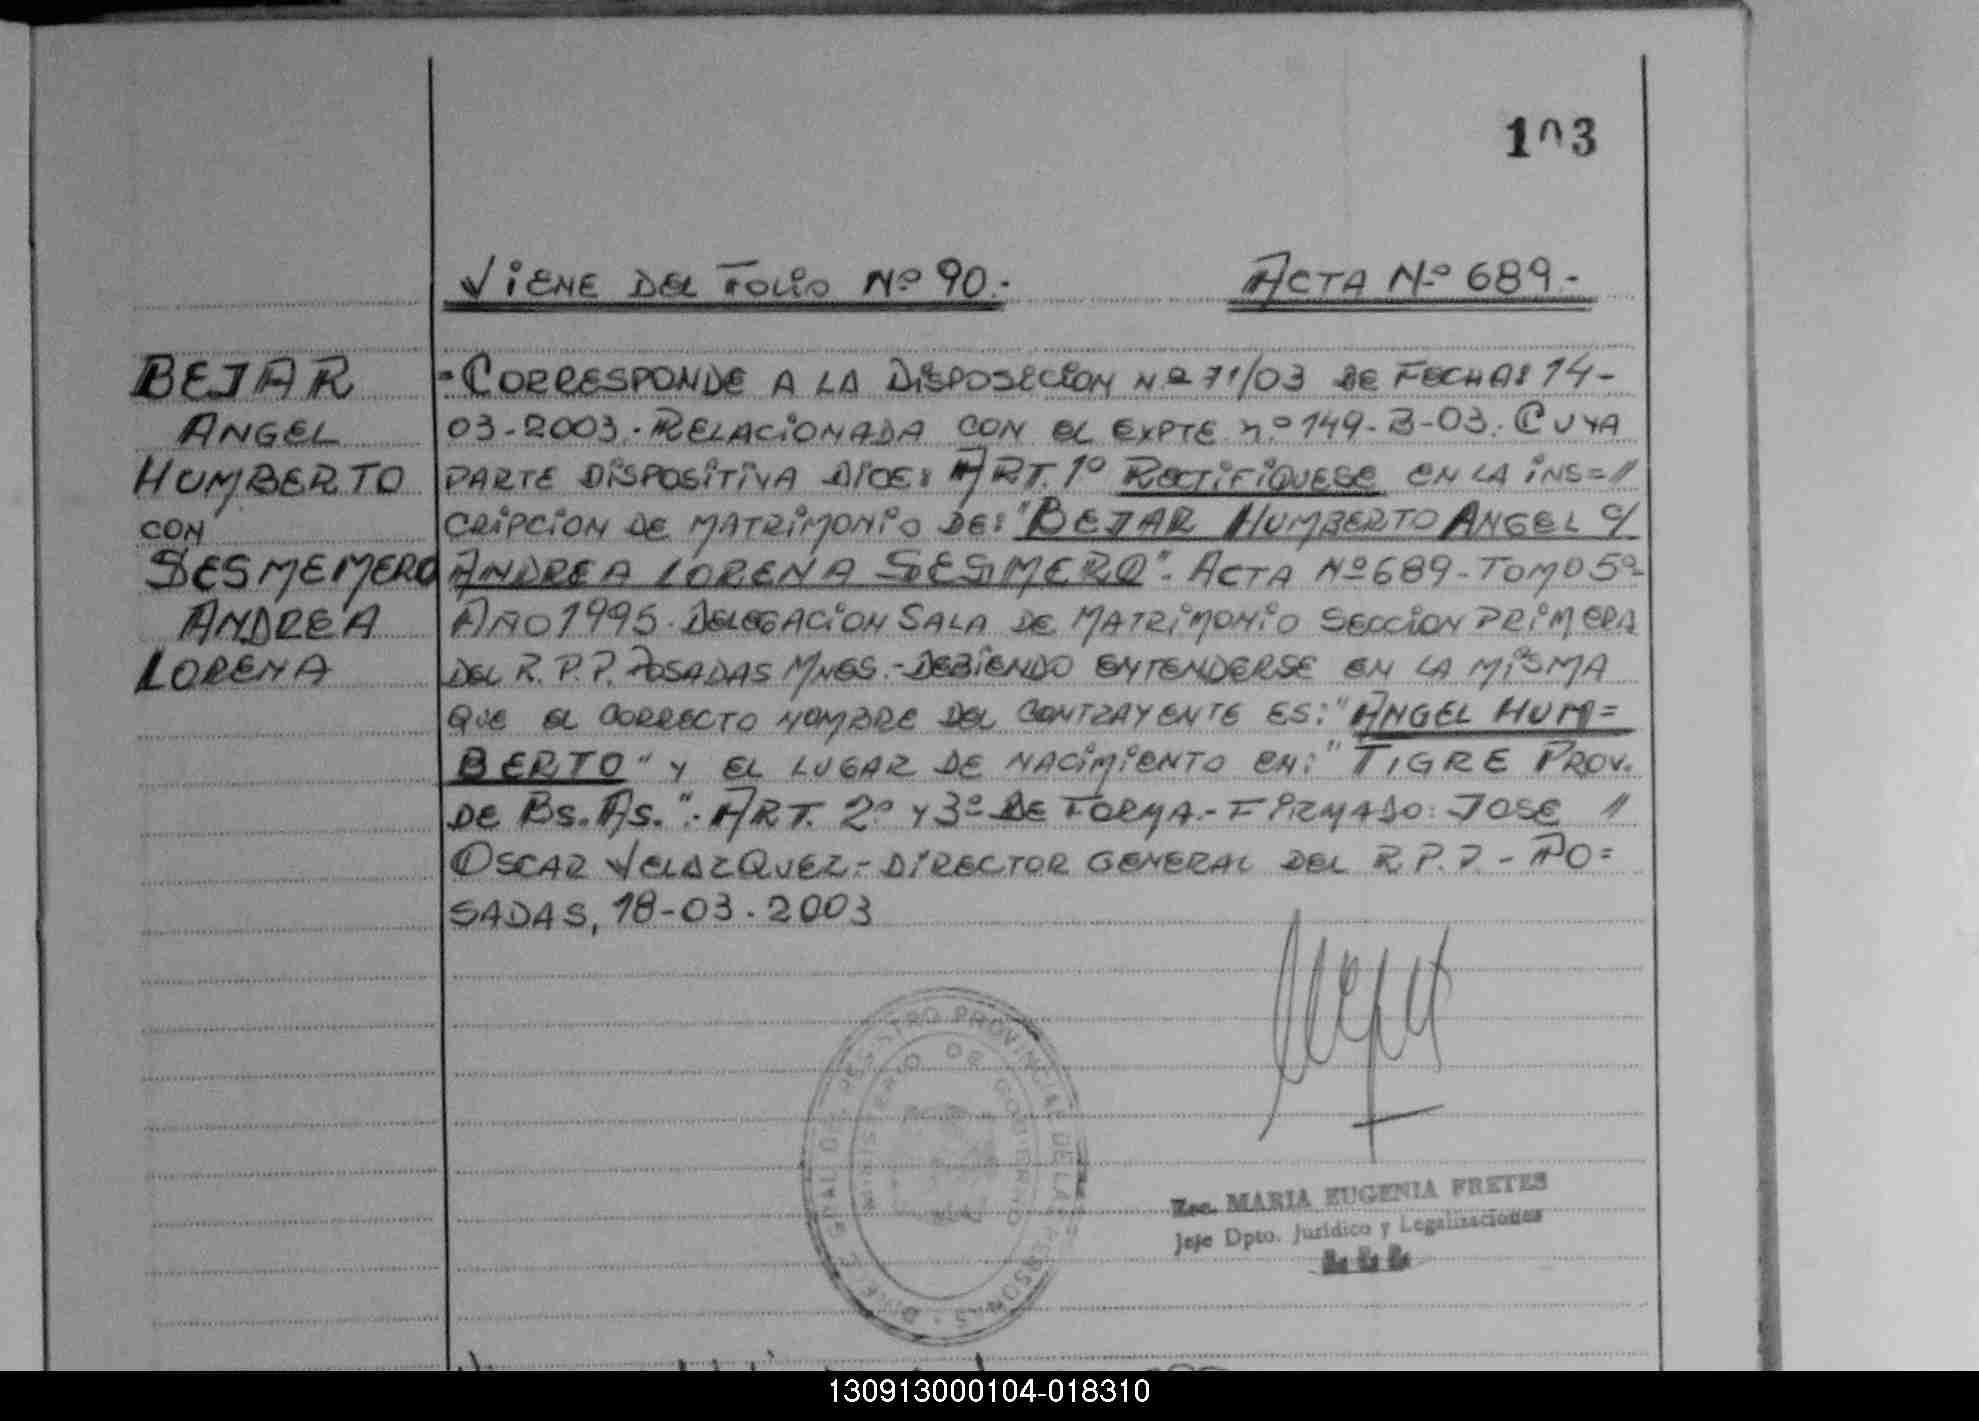 103
VIENE DEL FOLIO Nº 90.- ACTA Nº 689.-
BEJAR
ANGEL
HUMBERTO
CON
SESMEMERO
ANDREA
LORENA
-CORRESPONDE A LA DISPOSICION Nº 71/03 DE FECHA: 14-
03-2003. RELACIONADA CON EL EXPTE Nº 149-B-03. CUYA
PARTE DISPOSITIVA DICE: ART. 1º RECTIFIQUESE EN LA INS=/
CRIPCION DE MATRIMONIO DE: "BEJAR HUMBERTO ANGEL C/
ANDREA LORENA SESMERO". ACTA Nº 689-TOMO 5º-
AÑO 1995. DELEGACION SALA DE MATRIMONIO SECCION PRIMERA
DEL R.P.P. POSADAS MNES.-DEBIENDO ENTENDERSE EN LA MISMA
QUE EL CORRECTO NOMBRE DEL CONTRAYENTE ES: "ANGEL HUM=
BERTO" Y EL LUGAR DE NACIMIENTO EN: "TIGRE PROV.
DE BS. AS.". ART. 2º Y 3º DE FORMA.- FIRMADO: JOSE /
OSCAR VELAZQUEZ.- DIRECTOR GENERAL DEL R.P.P. - PO=
SADAS, 18-03-2003
REGISTRO PROVINCIAL DE LAS PERSONAS
MINISTERIO DE GOBIERNO
Esc. MARIA EUGENIA FRETES
Jefe Dpto. Jurídico y Legalizaciones
130913000104-018310